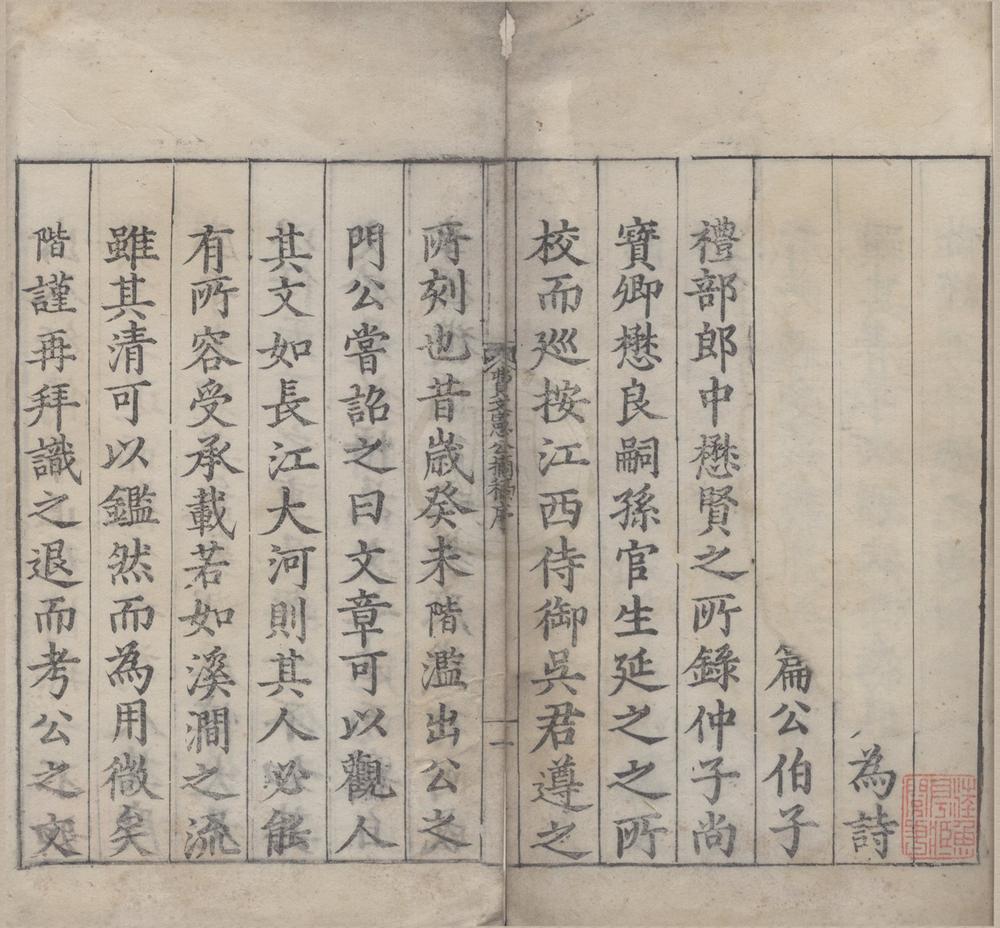 為詩
篇公伯子
禮部郎中懋賢之所錄仲子尚
寳卿懋良嗣孫官生延之之所
校而廵按江西侍御吳君遵之
費文憲公摘稿序
一
所刻也昔歲癸未階濫出公之
門公嘗詔之曰文章可以觀人
其文如長江大河則其人必能
有所容受承載若如溪澗之流
雖其清可以鑑然而為用微矣
階謹再拜識之退而考公之文